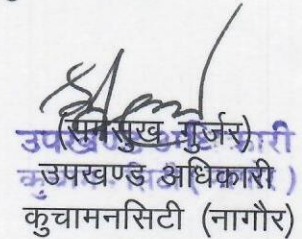 (मनसुख गुर्जर)
उपखण्ड अधिकारी
कुचामनसिटी (नागौर)